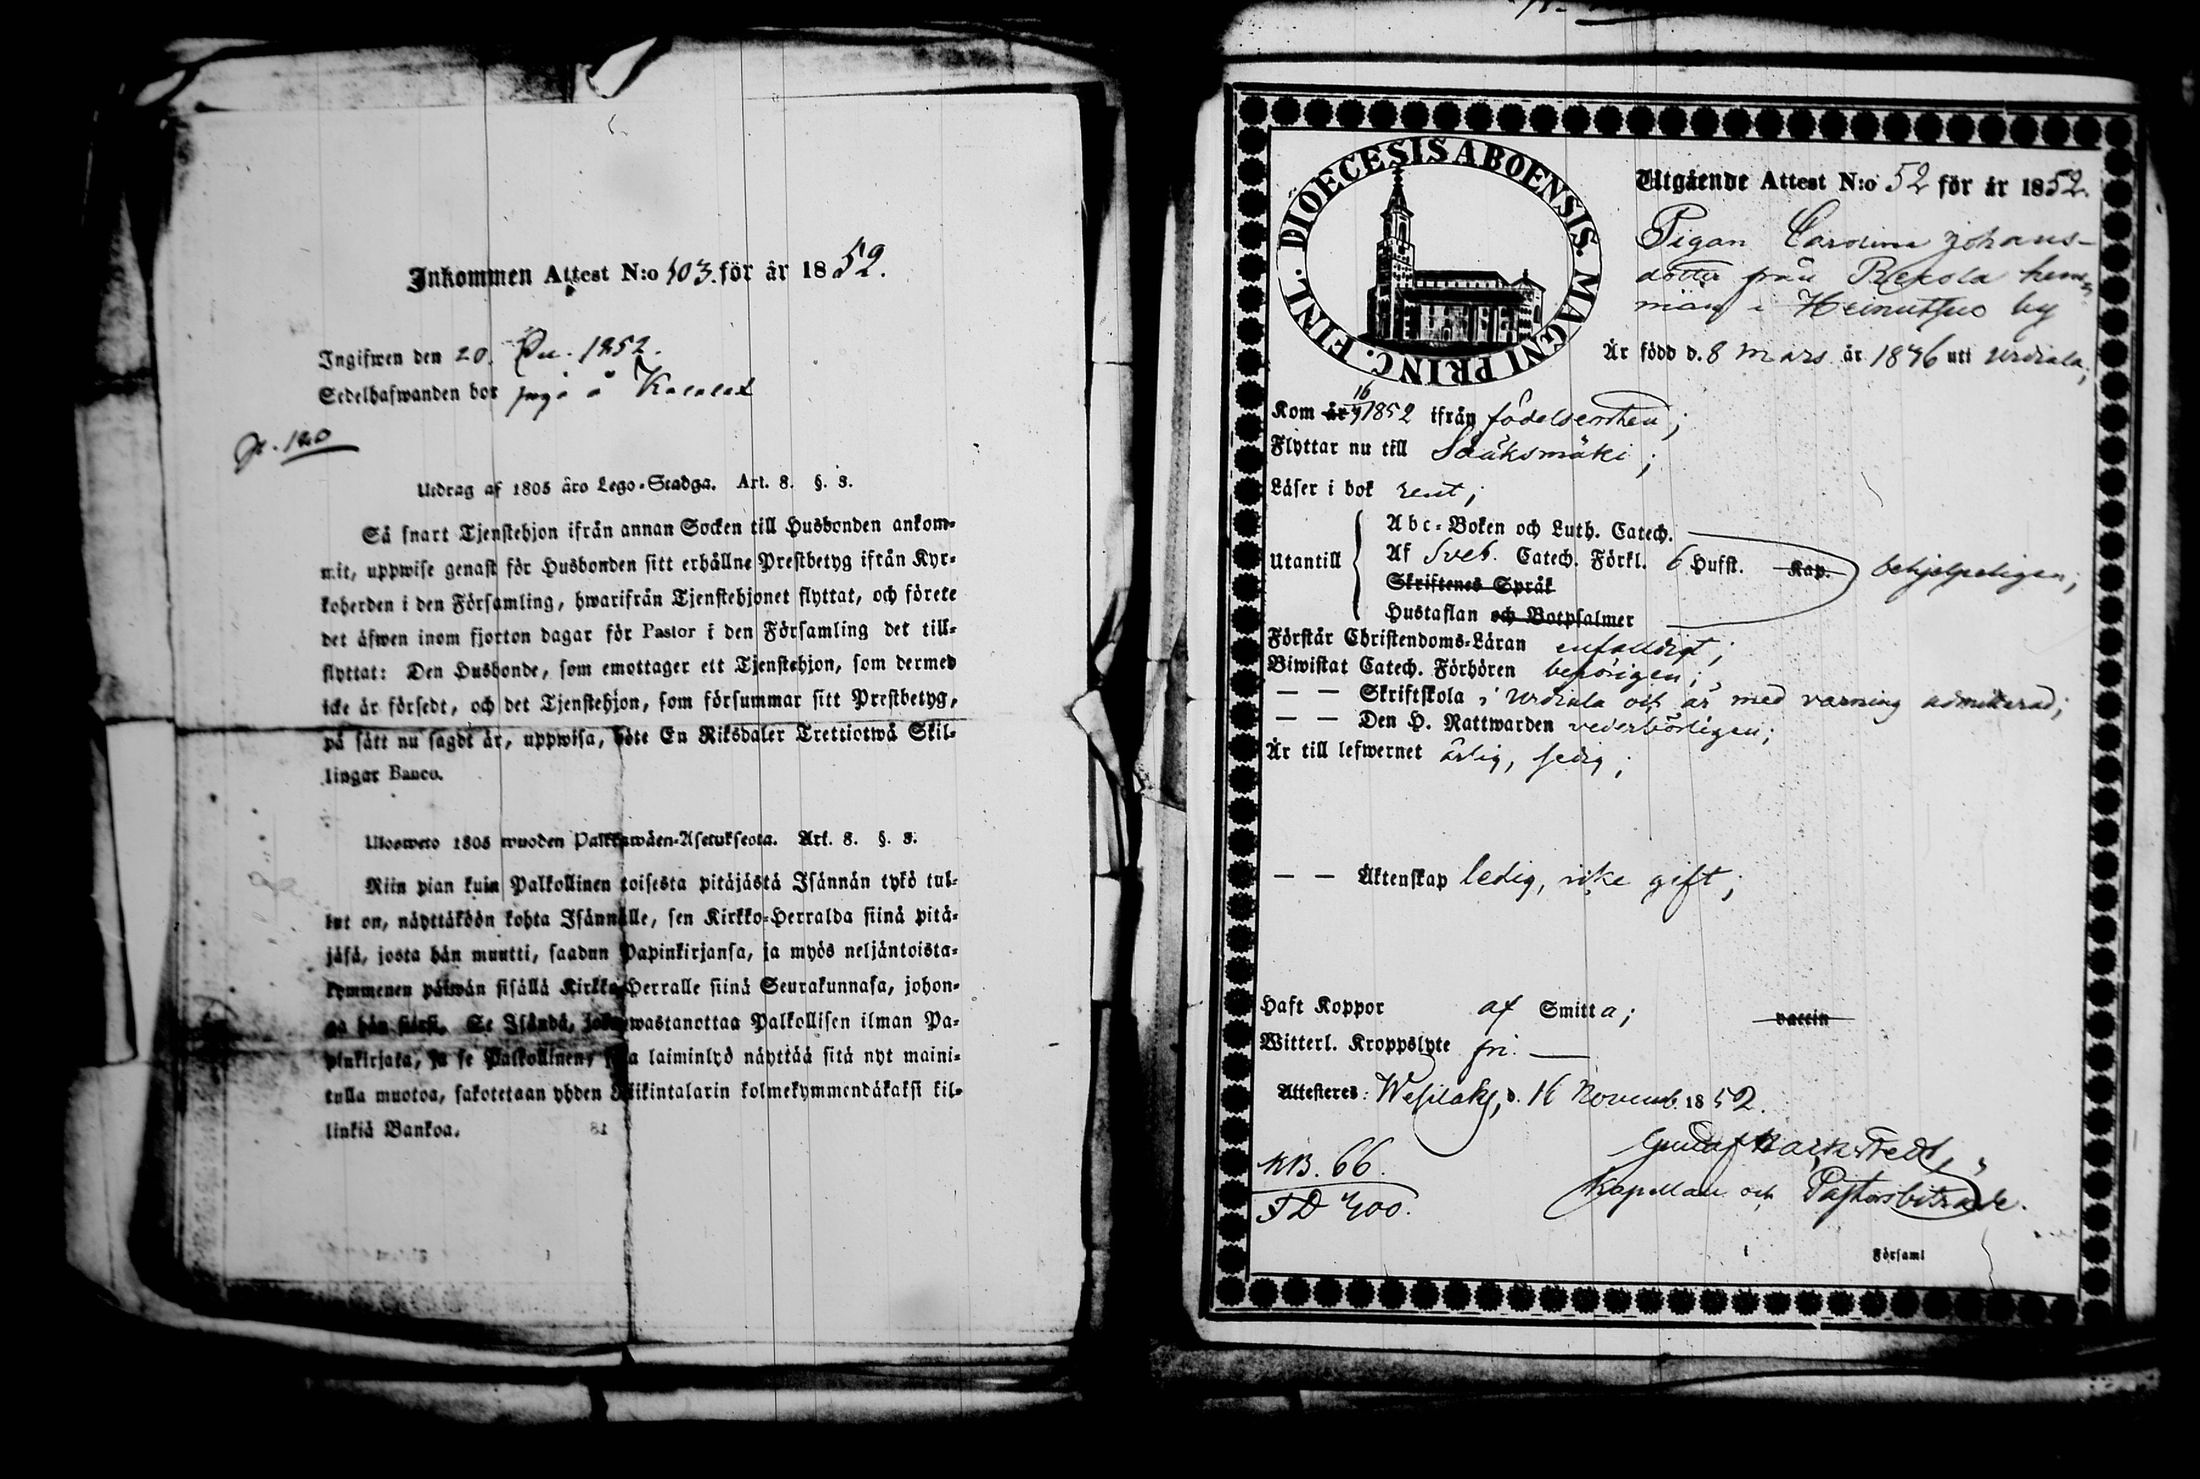 Inkommen Attest N:o 103. för år 1852.
Ingifwen den 20. 1852.
Sedelhafwanden bor
p. 120
Utdrag af 1805 års Lego-Stadga. Art. 8. §. 3.
Så snart Tjenstehjon ifrån annan Socken till Husbonden ankom-
mit, uppwise genast för Husbonden sitt erhållne Prestbetyg ifrån Kyr-
koherden i den Församling, hwarifrån Tjenstehjonet flyttat, och förete
det äfwen inom fjorton dagar för Pastor i den Församling det till-
flyttat: Den Husbonde, som emottager ett Tjenstehjon, som dermed
icke är försedt, och det Tjenstehjon, som försummar sitt Prestbetyg,
på sätt nu sagdt är, uppwisa, böte En Riksdaler Trettiotwå Skil-
lingar Banco.
Ulosweto 1805 wuoden Palkkawäen-Asetuksesta. Art. 8. §. 3.
Niin pian kuin Palkollinen toisesta pitäjästä Isännän tykö tul-
lut on, näyttäköön kohta Isännälle, sen Kirkko-Herralda siinä pitä-
jäsä, josta hän muutti, saadun Papinkirjansa, ja myös neljäntoista-
kymmenen päiwän sisällä Kirkko-Herralle siinä Seurakunnasa, johon-
ga hän siirsi. Se Isändä, joka wastanottaa Palkollisen ilman Pa-
pinkirjata, ja se Palkollinen, joka laiminlyö näyttää sitä nyt maini-
tulla muotoa, sakotetaan yhden Riikintalarin kolmekymmendäkaksi kil-
linkiä Bankoa.
DIOECESIS ABOENSIS. MAGNI PRINC. FINL.
Utgående Attest N:o 52 för år 1852.
Pigan Carolina Johans-
dotter från Rekola hem-
man i by
Är född d. 8 Mars år 1836 uti Urdiala;
Kom år 16/9 1852 ifrån födelseorten;
Flyttar nu till Sääksmäki;
Läser i bok rent;
Utantill
Abc-Boken och Luth. Catech.
Af Sveb. Catech. Förkl. 6 Hufst. Kap. behjelpeligen;
Skriftenes Språk
Hustaflan och Botpsalmer
Förstår Christendoms-Läran enfaldigt;
Biwistat Catech. Förhören behörigen;
— — Skriftskola i Urdiala och är med varning admitterad;
— — Den H. Nattwarden vederbörligen;
Är till lefwernet ärlig, sedig;
— — Äktenskap ledig, icke gift;
Haft Koppor af Smitta; vaccin
Witterl. Kroppslyte fri. —
Attesteres: Wesilaks, d. 16 Novemb. 1852.
Gustaf
Kapellan och Pastorsbiträde.
KB. 66.
FD 400.
Församl